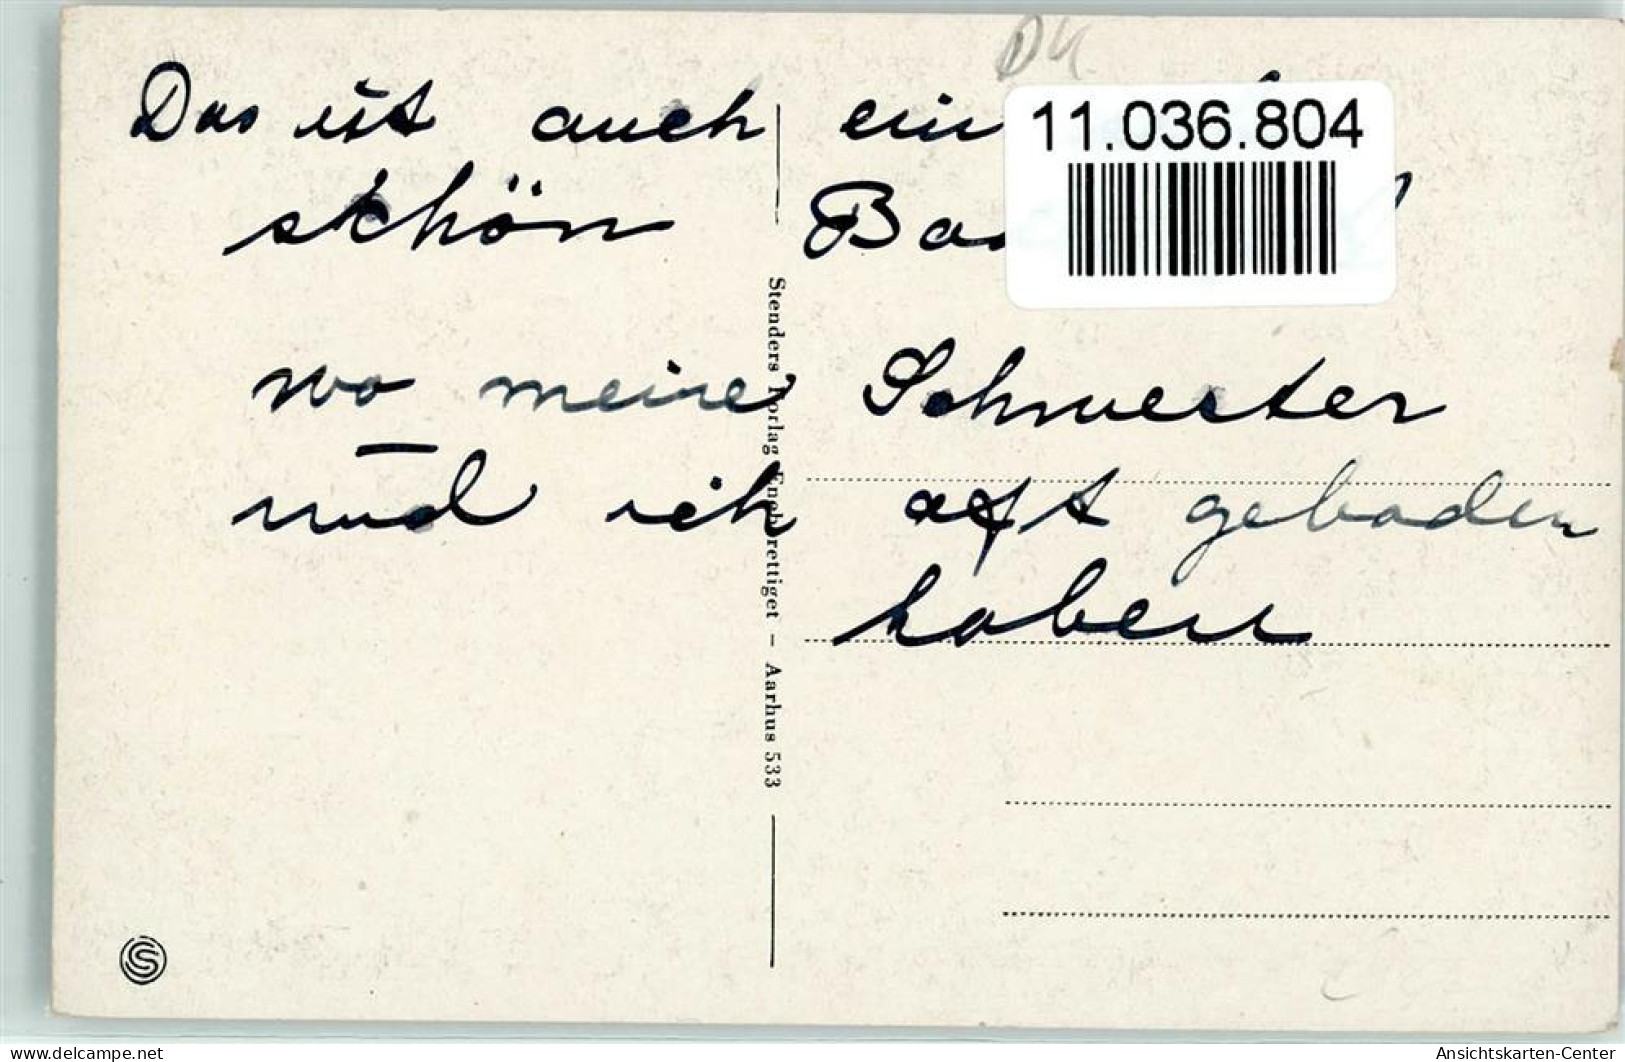 DK
Das ist auch ein
schön
wo meine Schwester
und ich oft gebaden
haben
11.036.804
Stenders Forlag Eneberettiget — Aarhus 533
S
delcampe.net
Ansichtskarten-Center